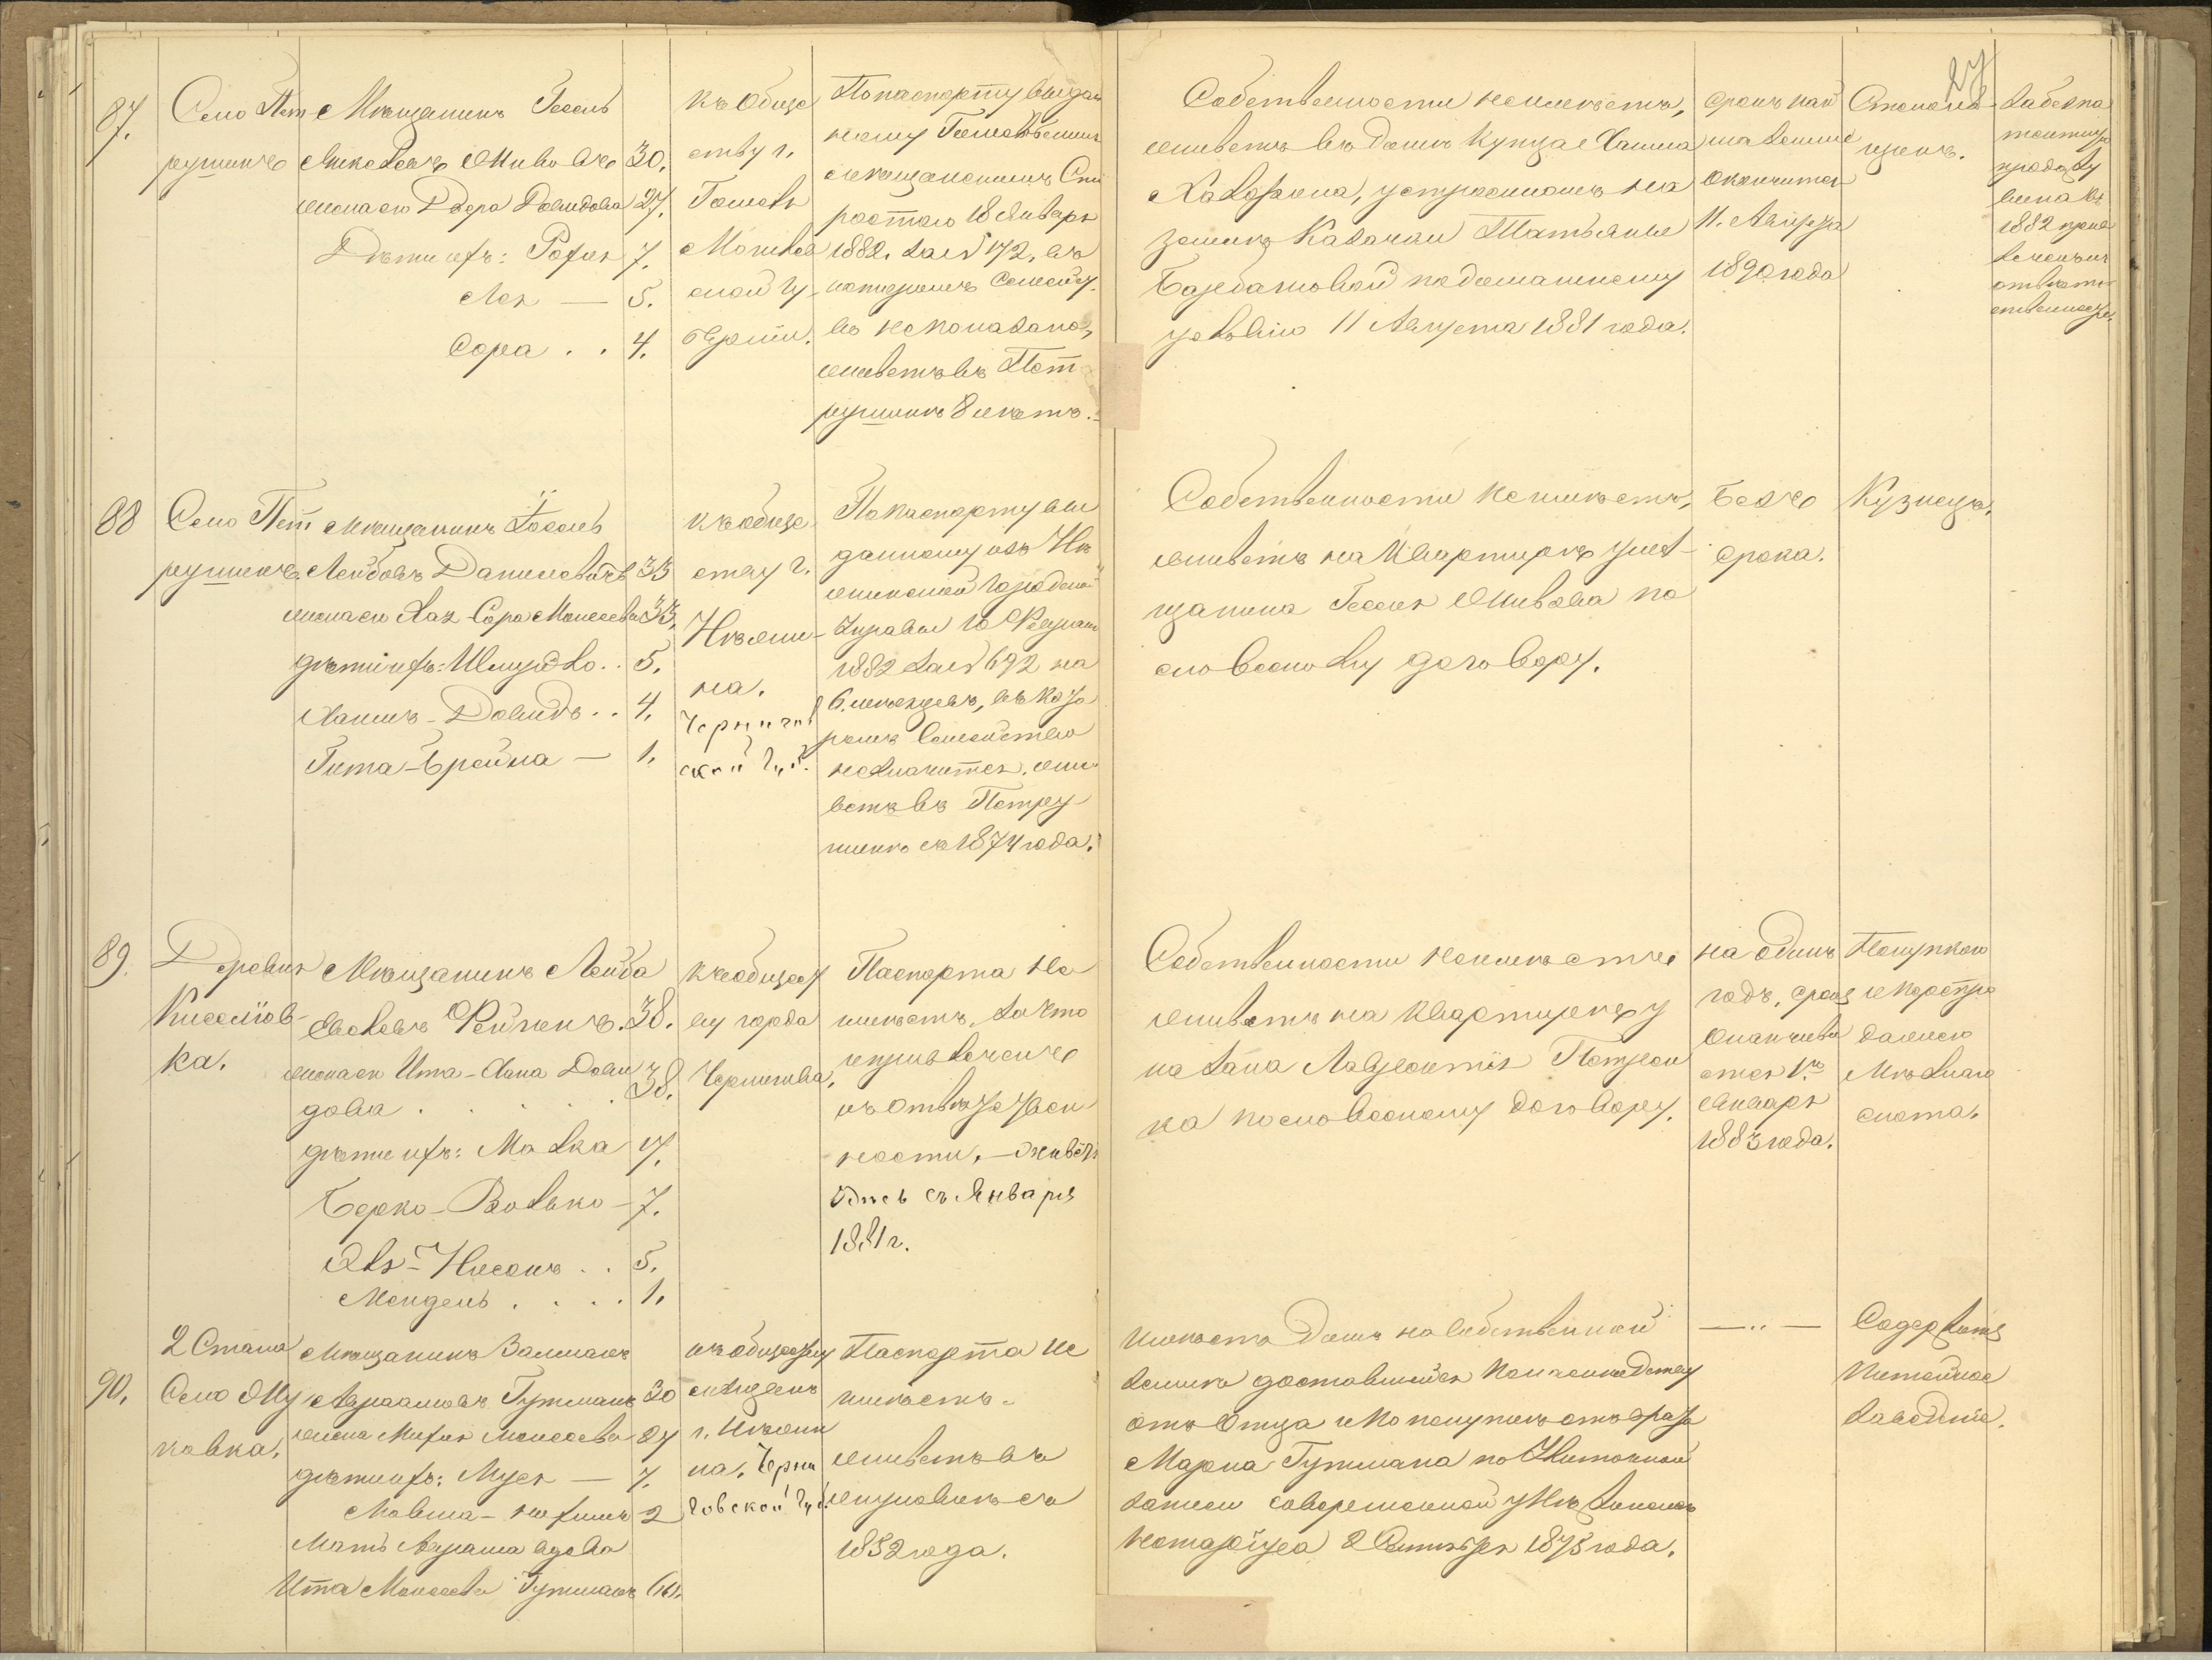 27
87.
Село Пет
рушинъ
Мѣщанинъ Гесель
Мововъ 30.
жена его Двера Довидова 27.
Дѣти ихъ: Рофля 7.
Лея — 5.
Сора . . 4.
къ обще
ству г.
Гомель
Могилев
ской гу
берніи.
По паспорту выдан
ному Гомельскимъ
мѣщанскимъ Ста
ростою 18 Января
1882. за № 172, въ
которомъ семейст
во не показано,
живетъ въ Пет
рушинѣ 8 лѣтъ.
Собственности не имѣетъ,
живетъ въ домѣ купца Хаима
Хавкина, устроенномъ на
землѣ Казачки Татьяны
по домашнему
условію 11 Августа 1881 года.
срокъ най
ма земли
окончится
11. Августа
1890 года
27
продажу
вина въ
1882
88
Село Пет
рушинъ.
мѣщанинъ Іосель
Лейбовъ Данилевичъ 33
жена его Хая Сора Моисеева 33.
дѣти ихъ: Шмуйло . . 5.
Хаимъ-Довидъ . . 4.
Гита-Брейна — 1.
къ обще
ству г.
Нѣжи-
на.
Чернигов
ской Губ.
По паспорту вы
данному изъ Нѣ
жинской городской
Управы 10 Февраля
1882 за № 692 на
6. мѣсяцевъ, въ кото
ромъ семейство
не значится. жи
ветъ въ Петру
шинѣ съ 1874 года.
Собственности не имѣетъ,
живетъ на квартирѣ у мѣ-
щанина Геселя по
словесному договору.
Безъ
срока.
Кузнецъ.
89.
Деревня
Киселіов-
ка.
Мѣщанинъ Лейба
Фейгинъ. 38.
жена его Ита-Хана Дови
дова . . . . . 38.
дѣти ихъ: Малка 17.
Берко-Волько — 7.
Нисонъ . . 5.
Мендель . . . . 1.
къ общест
ву города
Чернигова.
Паспорта не
имѣетъ, за что
и привлеченъ
къ отвѣтствен
ности. — живетъ
здѣсь съ Января
1881 г.
Собственности не имѣетъ
живетъ на квартирѣ у
козака Лаврентія Петрен
ка по словесному договору.
на одинъ
годъ, срокъ
оканчива
ется 1го
Января
1883 года.
Покупкою
и перепро
дажею
мѣлкаго
скота.
2 Стана
90.
Село Жу
ковка.
Мѣщанинъ Залманъ
Абрамовъ Гутманъ 30
жена Мифля Моисеева 27
дѣти ихъ: Муся — 7.
Мовша- 2
Мать Абрама вдова
Ита Моисеева Гутманъ 61.
къ обществу
мѣщанъ
г. Нѣжи
на. Черни
говской Губ.
Паспорта не
имѣетъ.
живетъ въ
Жуковкѣ съ
1852 года.
Имѣетъ домъ на собственной
землѣ доставшійся по наслѣдству
отъ отца и по покупкѣ отъ брата
Марка Гутмана по
записи совершенной у Нѣжинскаго
Нотаріуса 2 Сентября 1875 года.
— .. —
Содержитъ
питейное
заведеніе.